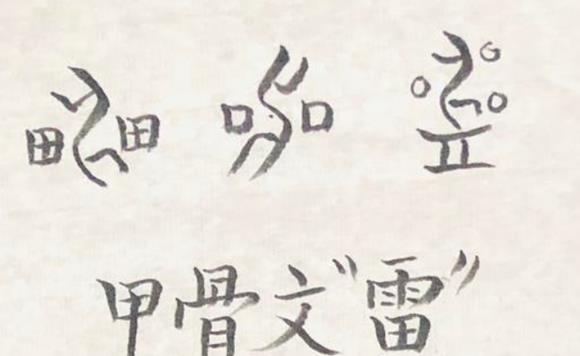 甲骨文“雷”